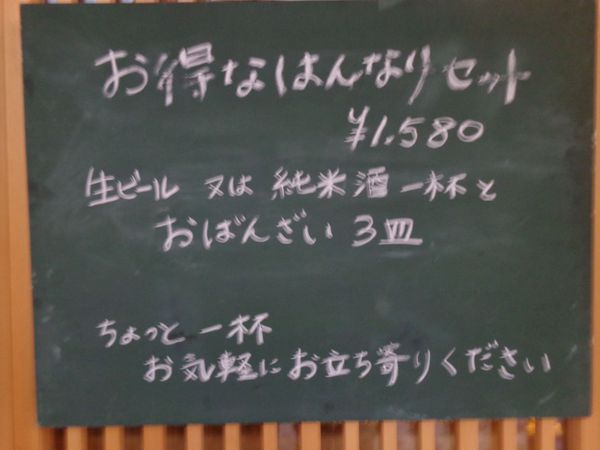 お得なはんなりセット
¥1,580
生ビール 又は 純米酒 一杯と
おばんざい 3皿
ちょっと 一杯
お気軽にお立ち寄りください